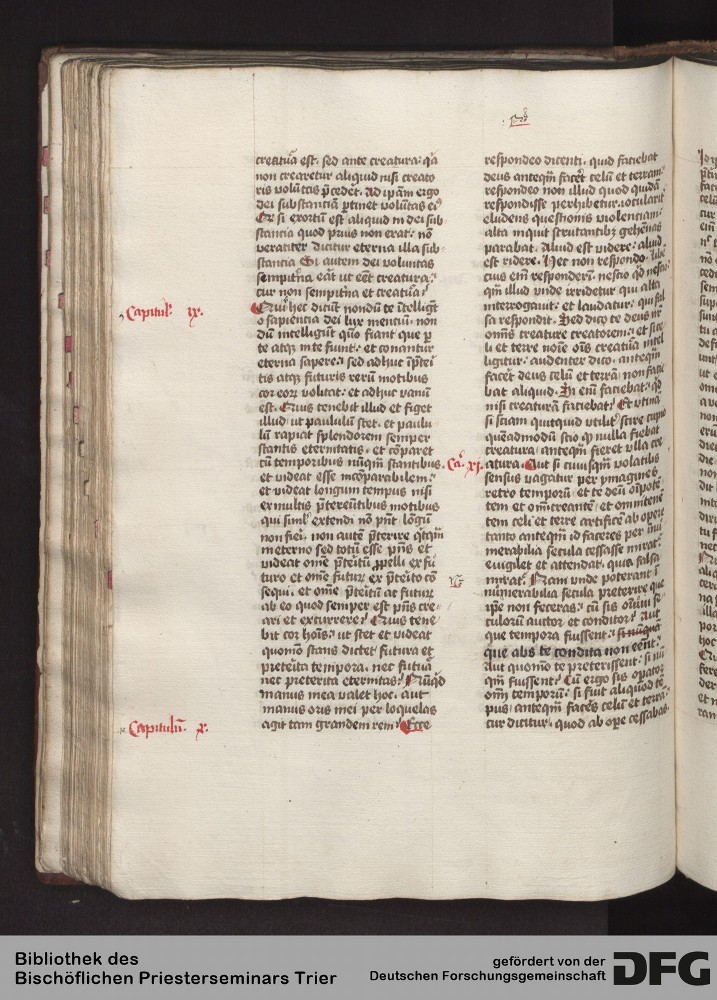 creatura est. sed ante creaturã. q̃a
non crearetur aliquid nisi creato
ris volũtas p̃cedet̃. Ad ip̃am ergo
dei substantiã ꝑtinet volũtas eiꝰ
Qr si exortũ est aliquid in dei sub
stantia quod prius non erat. nõ
veraciter dicitur eterna illa sub
stantia Si autem dei voluntas
sempit̃na erat ut eẽt creatura.
cur non sempit̃na et creatura?
Capitulũ ix.
Qui hec dicũt nondũ te ĩtelligũt
o sapientia dei lux mentiũ. non
dũ intelligũt quõ fiant que ꝑ
te atq̃ in te fiunt. et conantur
eterna sapere. sed adhuc ĩ p̃tei
tis atq̃ futuris rerũ motibus
cor eorũ volitat. et adhuc vanũ
est. Quis tenebit illud et figet
illud. ut paululũ stet. et paulu
lũ rapiat splendorem semper
stantis eternitatis. et cõparet
cũ temporibus nũq̃m stantibus.
et videat esse incõparabilem.
et videat longum tempus nisi
ex multis p̃tereũtibus motibus
qui siml̃ extendi nõ pñt lõgũ
non fieri. non autẽ p̃terire q̃cq̃m
in eterno sed totũ esse p̃ñs et
videat omẽ p̃teitũ ꝓpelli ex fu
turo et omẽ futurũ ex p̃teito cõ
sequi. et omẽ p̃teitũ ac futurũ
ab eo quod semper est p̃ñs cre
ari et excurrere? Quis tene
bit cor hoĩs. ut stet et videat
quomõ stans dictet futura et
preterita tempora. nec futura
nec preterita eternitas? Nũq̃d
manus mea valet hoc. aut
manus oris mei per loquelas
Capitulũ x.
agit tam grandem rem? Ecce
respondeo dicenti. quid faciebat
deus anteq̃m facet̃ celũ et terram.
respondeo non illud quod quidã
respondisse perhibetur. ioculariter
eludens questionis violentiam.
alta inquit scrutantibꝫ gehẽnas
parabat. Aliud est videre. aliud
est ridere. Hec non respondeo. libẽ
cius eĩm responderĩ. nescio qd̃ nescio.
q̃m illud unde irridetur qui alta
interrogauit. et laudatur qui fal
sa respondit. Sed dico te deus nr̃
om̃is creature creatorem. et si ce
li et terre noĩe oĩs creatura intel
ligitur. audenter dico. anteq̃m
facet̃ deus celũ et terrã. non facie
bat aliquid. Si eĩm faciebat. qd̃
nisi creaturã faciebat? Et utinã
si sciam quicquid utilit̃ scire cupio
quẽadmodũ scio ꝙ nulla fiebat
creatura. anteq̃m fieret ulla cre
Ca. xi.
atura. Aut si cuiusq̃m volatilis
sensus vagatur per ymagines
retro temporũ. et te deũ oĩpotẽ
tem et om̃creantẽ. et om̃tenẽ
tem celi et terre artificẽ ab opere
tanto anteq̃m id faceres per inu
merabilia secula cessasse mirat̃.
euigilet et attendat. quia falsa
mirat̃. Nam unde poterant ĩ
numerabilia secula preterire que
ip̃e non feceras. cũ sis om̃iũ se
culorũ auctor et conditor? Aut
que tempora fuissent.
que abs te condita non eẽnt.
Aut quomõ te preterissent. si nũ
q̃m fuissent? Cũ ergo sis operator
om̃i temporũ. si fuit aliquod tẽ
pus. anteq̃m faceres celũ et terrã.
cur dicitur. quod ab oꝑe cessabas.
Bibliothek des
Bischöflichen Priesterseminars Trier
gefördert von der
Deutschen Forschungsgemeinschaft
DFG